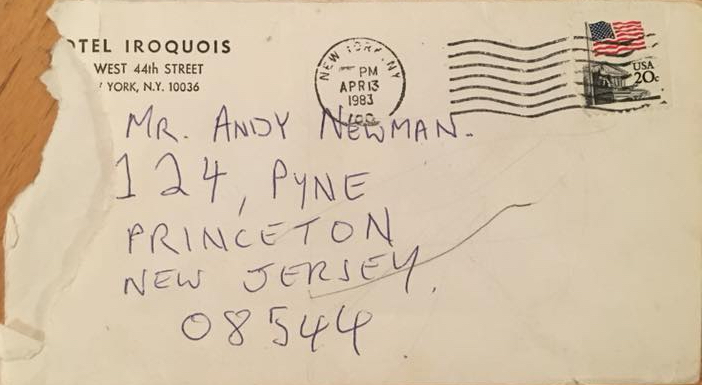 OTEL IROQUOIS
WEST 44th STREET
YORK, N.Y. 10036
NEW YORK, NY
PM
APR 13
1983
USA
20c
MR. ANDY NEWMAN.
124, PYNE
PRINCETON
NEW JERSEY.
08544